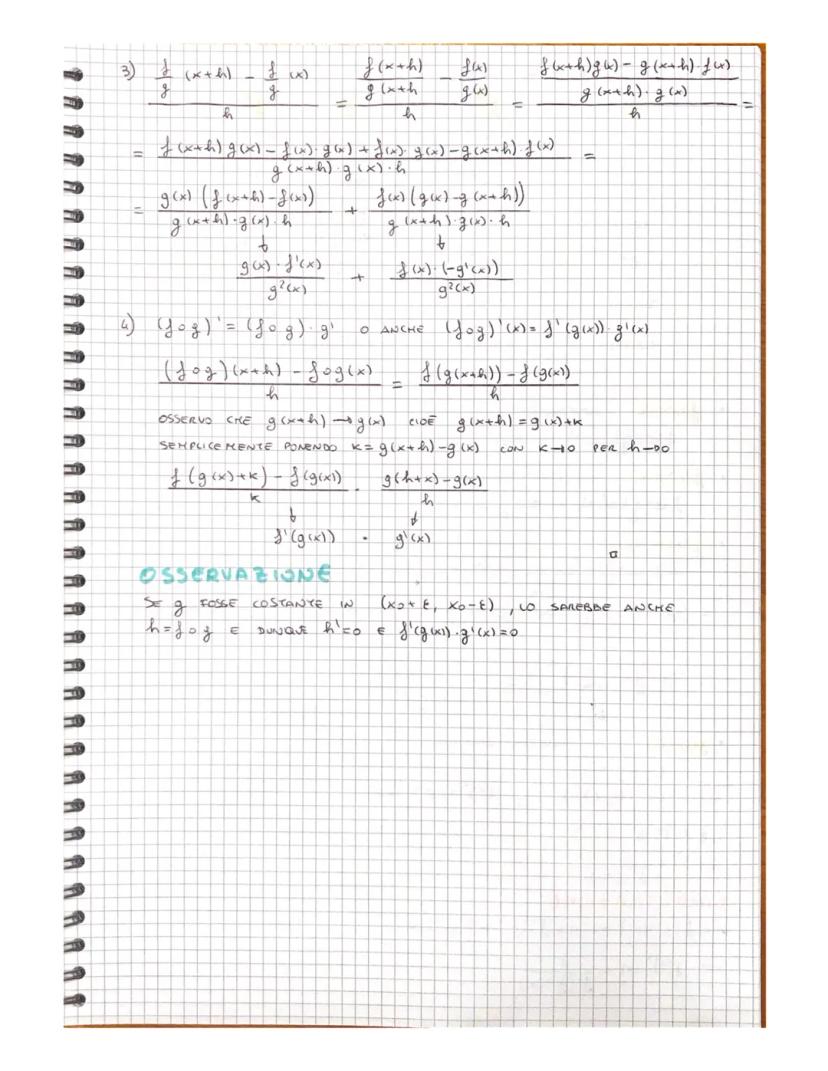 3) (f/g (x+h) - f/g (x))/h = (f(x+h)/g(x+h - f(x)/g(x))/h = ((f(x+h)g(x) - g(x+h)·f(x))/(g(x+h)·g(x)))/h =
= (f(x+h)g(x) - f(x)·g(x) + f(x)·g(x) - g(x+h)·f(x))/(g(x+h)·g(x)·h) =
= (g(x)(f(x+h)-f(x)))/(g(x+h)·g(x)·h) + (f(x)(g(x)-g(x+h)))/(g(x+h)·g(x)·h)
↓ ↓
(g(x)·f'(x))/(g²(x)) + (f(x)·(-g'(x)))/(g²(x))
4) (f∘g)' = (f∘g)·g' O ANCHE (f∘g)'(x) = f'(g(x))·g'(x)
((f∘g)(x+h) - f∘g(x))/h = (f(g(x+h)) - f(g(x)))/h
OSSERVO CHE g(x+h) → g(x) CIOÈ g(x+h) = g(x)+K
SEMPLICEMENTE PONENDO K = g(x+h)-g(x) CON K→0 PER h→0
(f(g(x)+K) - f(g(x)))/K · (g(h+x)-g(x))/h
↓ ↓
f'(g(x)) · g'(x)
□
OSSERVAZIONE
SE g FOSSE COSTANTE IN (x₀+ε, x₀-ε), LO SAREBBE ANCHE
h = f∘g E DUNQUE h'=0 E f'(g(x))·g'(x)=0